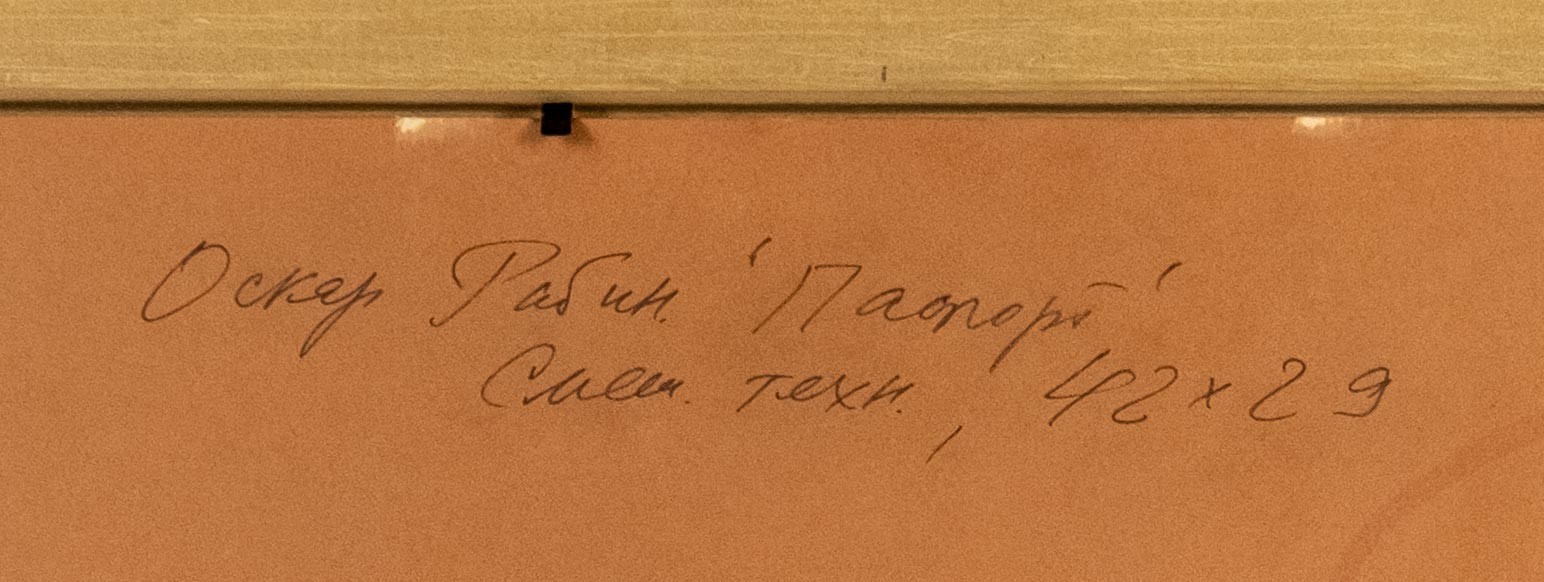 Оскар Рабин. "Паспорт"
Смеш. техн., 42 x 29